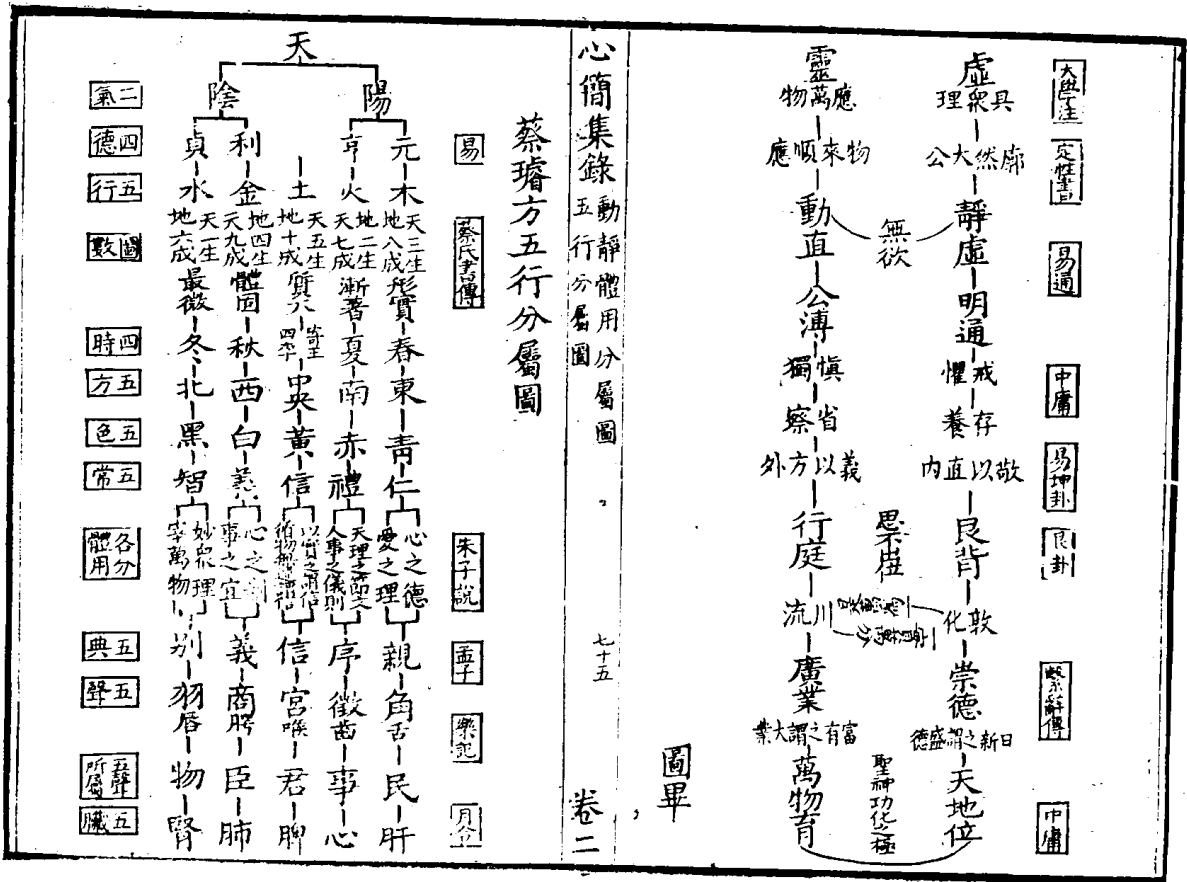 大學注
定性書
易通
中庸
易坤卦
艮卦
繫辭傳
中庸
虛
具衆理
廓然大公
靜虛
明通
戒懼
存養
敬以直内
艮背
敦化
崇德
日新之謂盛德
天地位
無欲
思不出位
聖神功化之極
靈
應萬物
物來順應
動直
公溥
慎獨
省察
義以方外
行庭
川流
廣業
富有之謂大業
萬物育
圖畢
心簡集錄
動靜體用分屬圖
五行分屬圖
七十五
卷二
蔡璿方五行分屬圖
易
蔡氏書傳
朱子說
孟子
樂記
月令
天
陽
陰
元
木
天三生
地八成
形實
春
東
青
仁
心之德
愛之理
親
角
舌
民
肝
亨
火
地二生
天七成
漸著
夏
南
赤
禮
天理之節文
人事之儀則
序
徵
齒
事
心
土
天五生
地十成
質大
寄王
四季
中央
黃
信
以實之謂信
信
宮
喉
君
脾
利
金
地四生
天九成
體固
秋
西
白
義
心之制
事之宜
義
商
腭
臣
肺
貞
水
天一生
地六成
最微
冬
北
黑
智
妙衆理
宰萬物
別
羽
唇
物
腎
二氣
四德
五行
圖數
四時
五方
五色
五常
各分體用
五典
五聲
五聲所屬
五臟